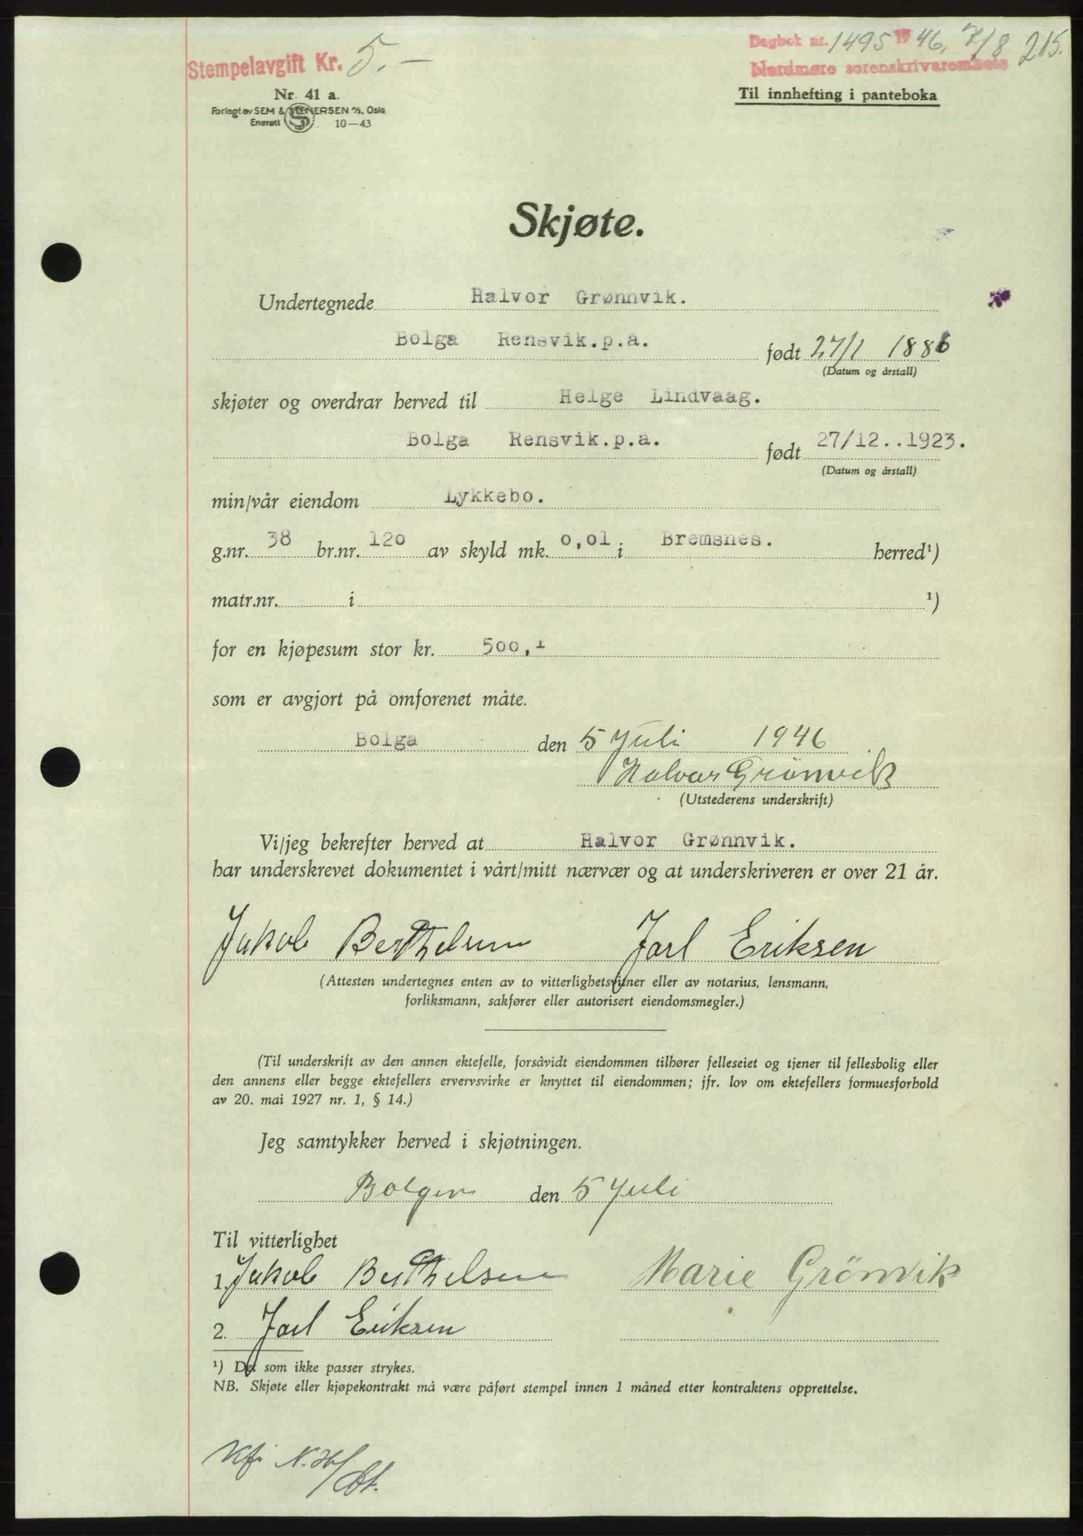 Stempelavgift Kr. 5.—
Dagbok nr. 1495 1946, 7/8 215.
Nordmøre sorenskrivarembete
Nr. 41 a.
Forlagt av SEM & STENERSEN A/S, Oslo
Enerett S 10—43
Til innhefting i panteboka
Skjøte.
Undertegnede Halvor Grønnvik.
Bolga Rensvik.p.a. født 27/1 1886
(Datum og årstall)
skjøter og overdrar herved til Helge Lindvaag.
Bolga Rensvik.p.a. født 27/12..1923.
(Datum og årstall)
min/vår eiendom Lykkebo.
g.nr. 38 br.nr. 120 av skyld mk. 0,01 i Bremsnes. herred¹)
matr.nr. i ¹)
for en kjøpesum stor kr. 500,-
som er avgjort på omforenet måte.
Bolga den 5 Juli 1946
Halvor Grönvik
(Utstederens underskrift)
Vi/jeg bekrefter herved at Halvor Grønnvik.
har underskrevet dokumentet i vårt/mitt nærvær og at underskriveren er over 21 år.
Jakob Berthelsen Jarl Eriksen
(Attesten undertegnes enten av to vitterlighetsvidner eller av notarius, lensmann,
forliksmann, sakfører eller autorisert eiendomsmegler.)
(Til underskrift av den annen ektefelle, forsåvidt eiendommen tilhører felleseiet og tjener til fellesbolig eller
den annens eller begge ektefellers ervervsvirke er knyttet til eiendommen; jfr. lov om ektefellers formuesforhold
av 20. mai 1927 nr. 1, § 14.)
Jeg samtykker herved i skjøtningen.
Bolgen den 5 Juli
Til vitterlighet
1. Jakob Berthelsen Marie Grönvik
2. Jarl Eriksen
¹) Det som ikke passer strykes.
NB. Skjøte eller kjøpekontrakt må være påført stempel innen 1 måned etter kontraktens opprettelse.